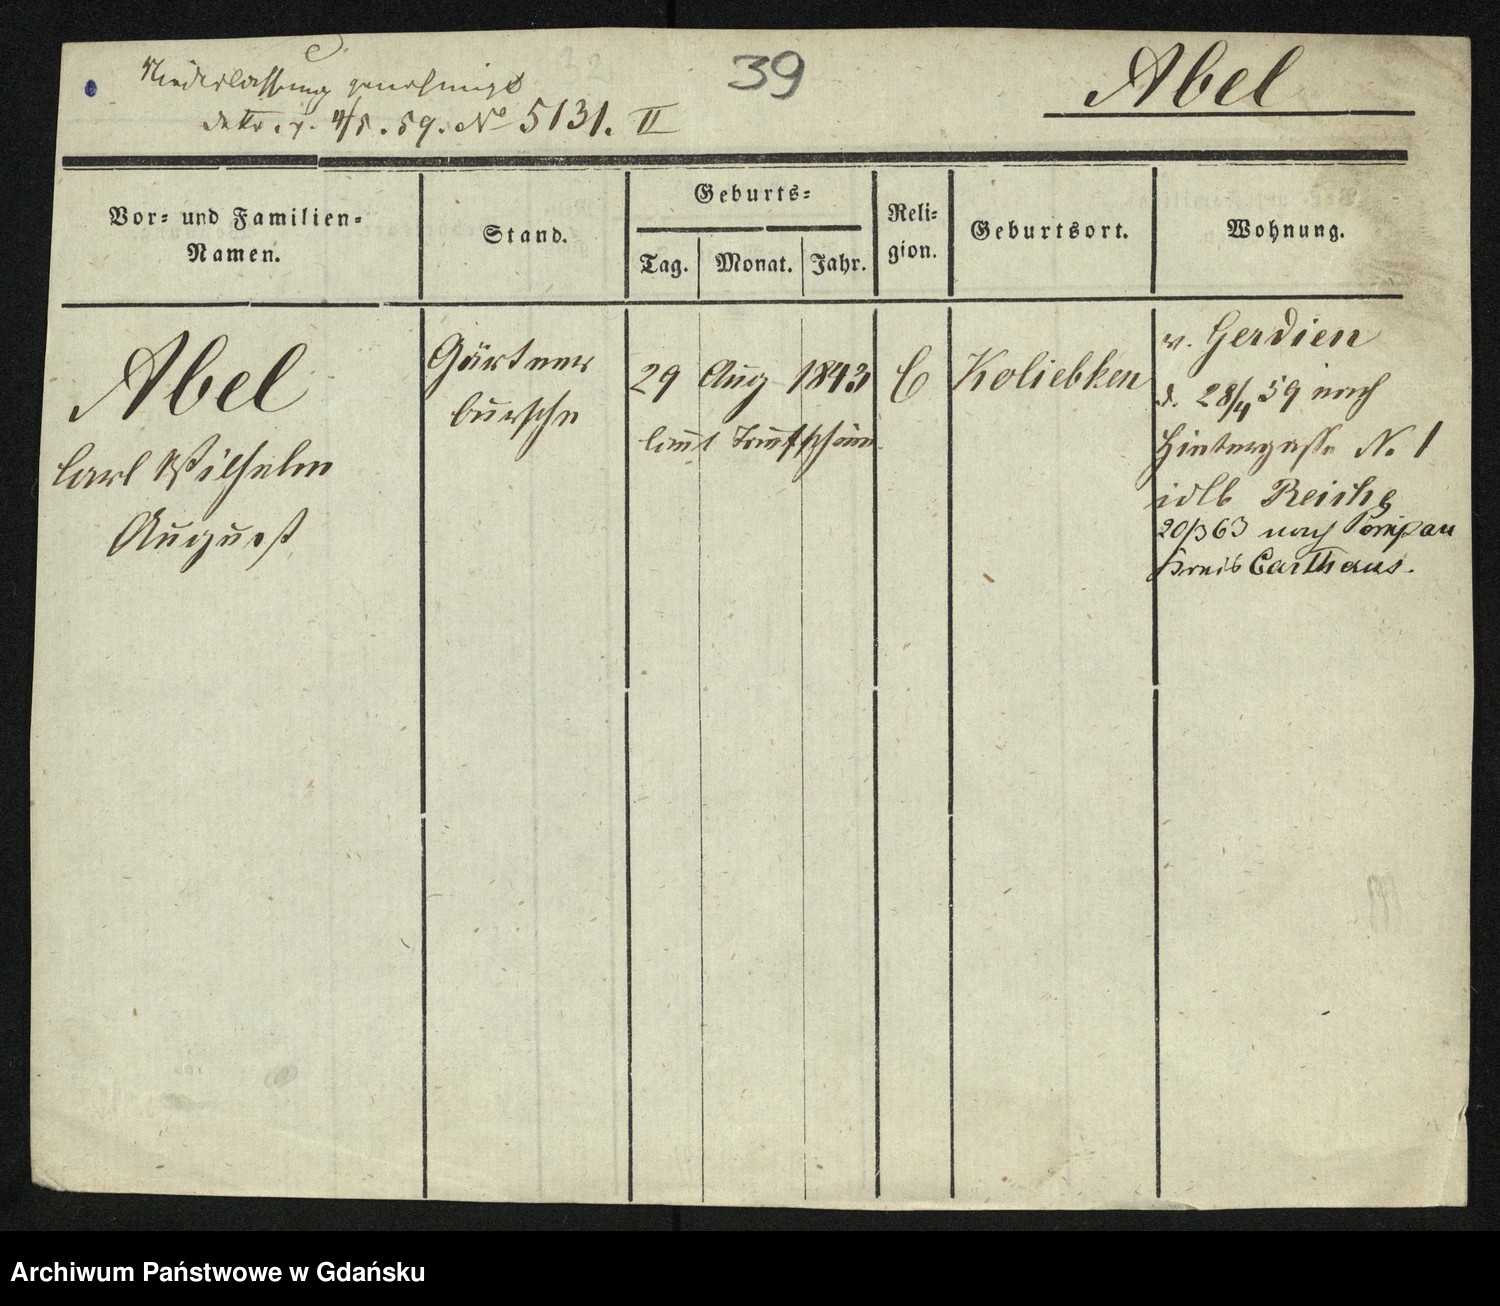 Niederlassung genehmigt
dekr. v. 4/5. 59. No 5131. II
39
Abel
Vor= und Familien=
Namen.
Stand.
Geburts=
Tag.
Monat.
Jahr.
Reli=
gion.
Geburtsort.
Wohnung.
Abel
Carl Wilhelm
August
Gärtner
bursche
29 Aug 1843
laut Taufschein
C
Koliebken
v. Gerdien
d. 28/4 59 nach
Hintergasse N. 1
Reiche
20/3 63 nach
Kreis Carthaus.
Archiwum Państwowe w Gdańsku